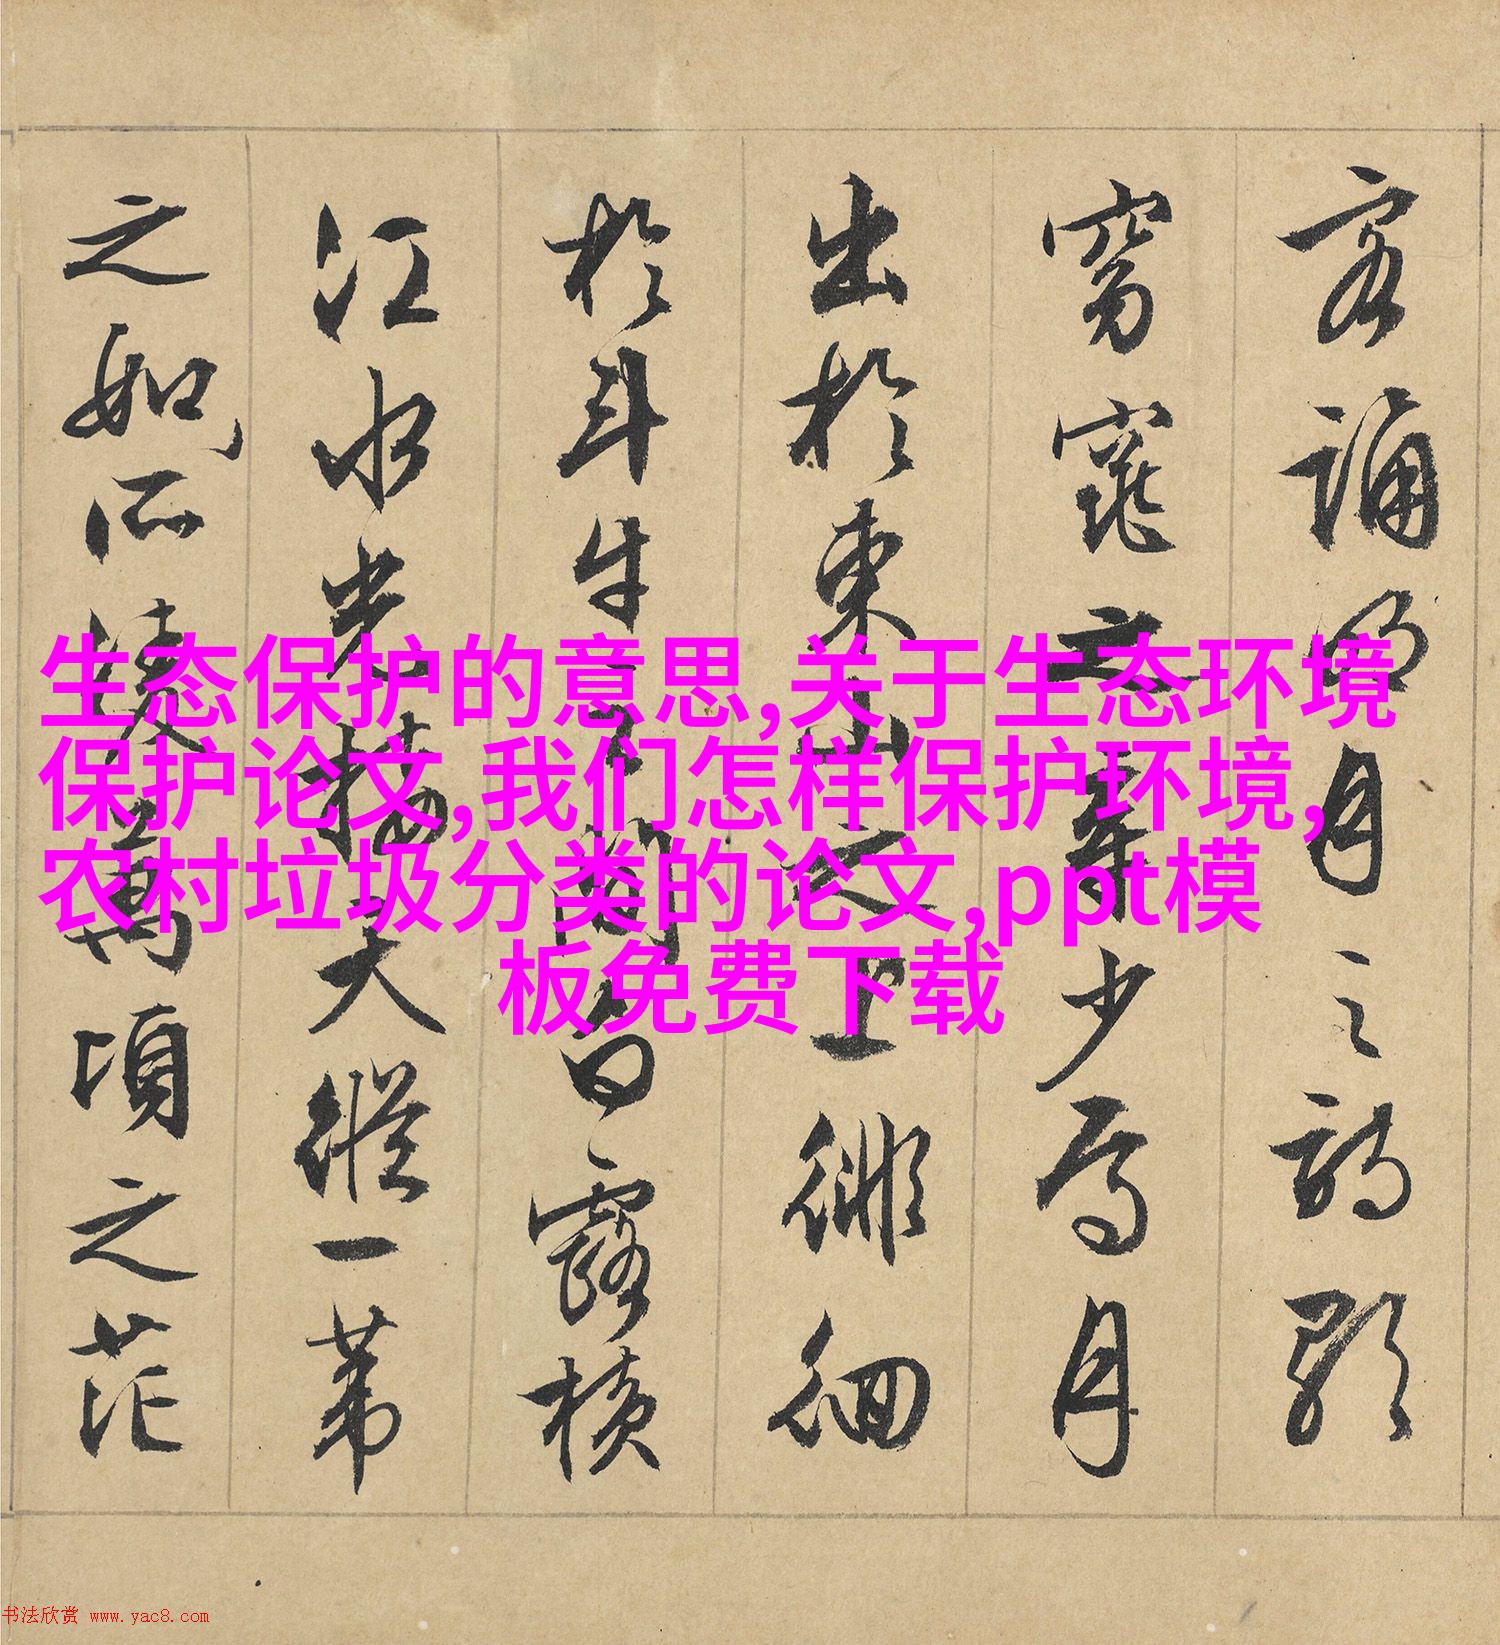 客誦明月之詩歌
窈窕之章少焉月
出於東山之上徘徊
於斗牛之間白露橫
江水光接天縱一葦
之如所凌萬頃之茫
生态保护的意思,关于生态环境
保护论文,我们怎样保护环境,
农村垃圾分类的论文,ppt模
板免费下载
书法欣赏 www.yac8.com